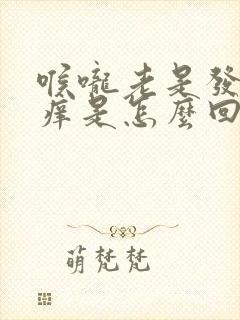 喉嚨老是發
癢是怎麼回
萌梵梵